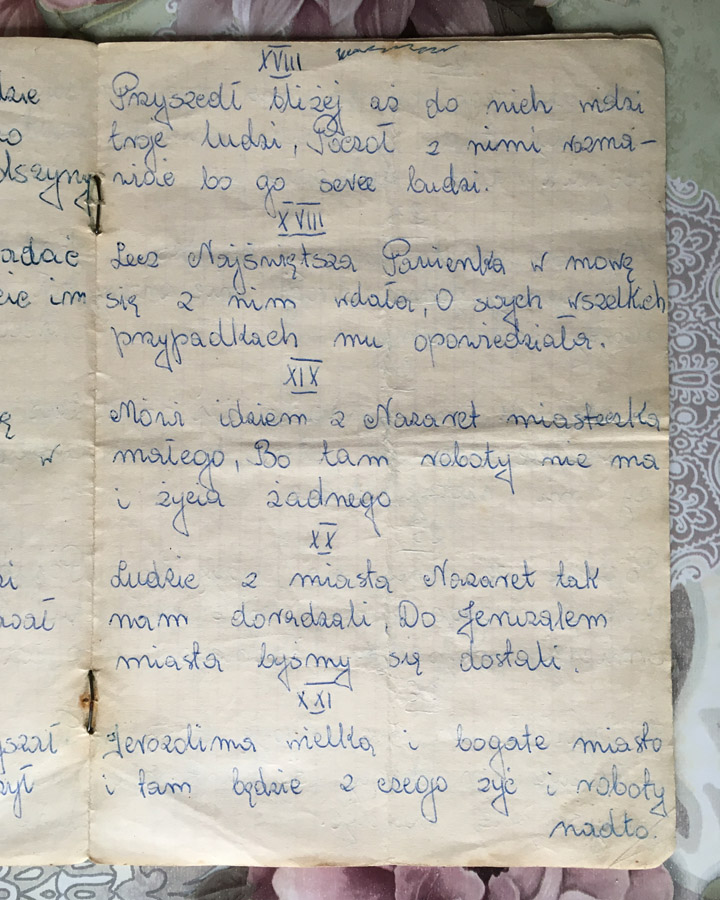 dzie
ło
olszyny
adać
cie im
ę
w
zi
szał
XVIII
Przyszedł bliżej aż do nich widzi
troje ludzi, Począł z nimi rozma-
wiać bo go serce budzi.
XVIII
Lecz Najświętsza Panienka w mowę
się z nim wdała, O swych wszelkich
przypadkach mu opowiedziała.
XIX
Mówi idziem z Nazaret miasteczka
małego, Bo tam roboty nie ma
i życia żadnego
XX
Ludzie z miasta Nazaret tak
nam doradzali, Do Jeruzalem
miasta byśmy się dostali.
XXI
Jerozolima wielka i bogate miasto
i tam będzie z czego żyć i roboty
nadto.